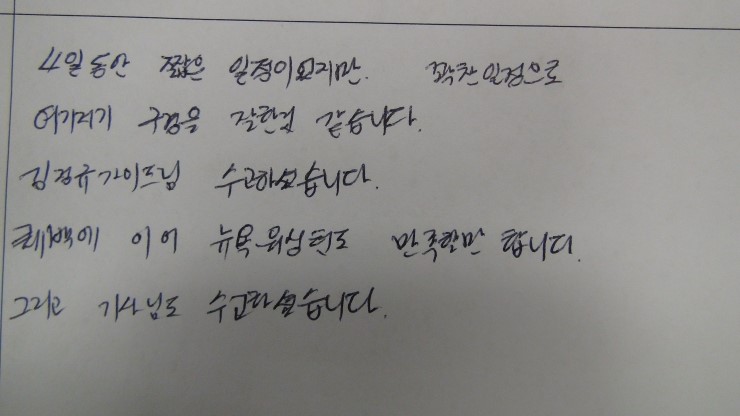 4일동안 짧은 일정이었지만. 꽉찬일정으로
여기저기 구경을 잘한것 같습니다.
김정규가이드님 수고하셨습니다.
퀘백에 이어 뉴욕워싱턴도 만족할만 합니다.
그리고 기사님도 수고하셨습니다.